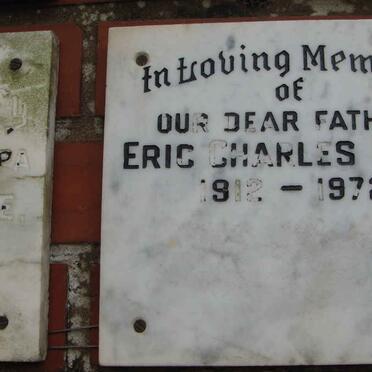 In Loving Mem
of
OUR DEAR FATH
ERIC CHARLES
1912 — 1972
PA
E.